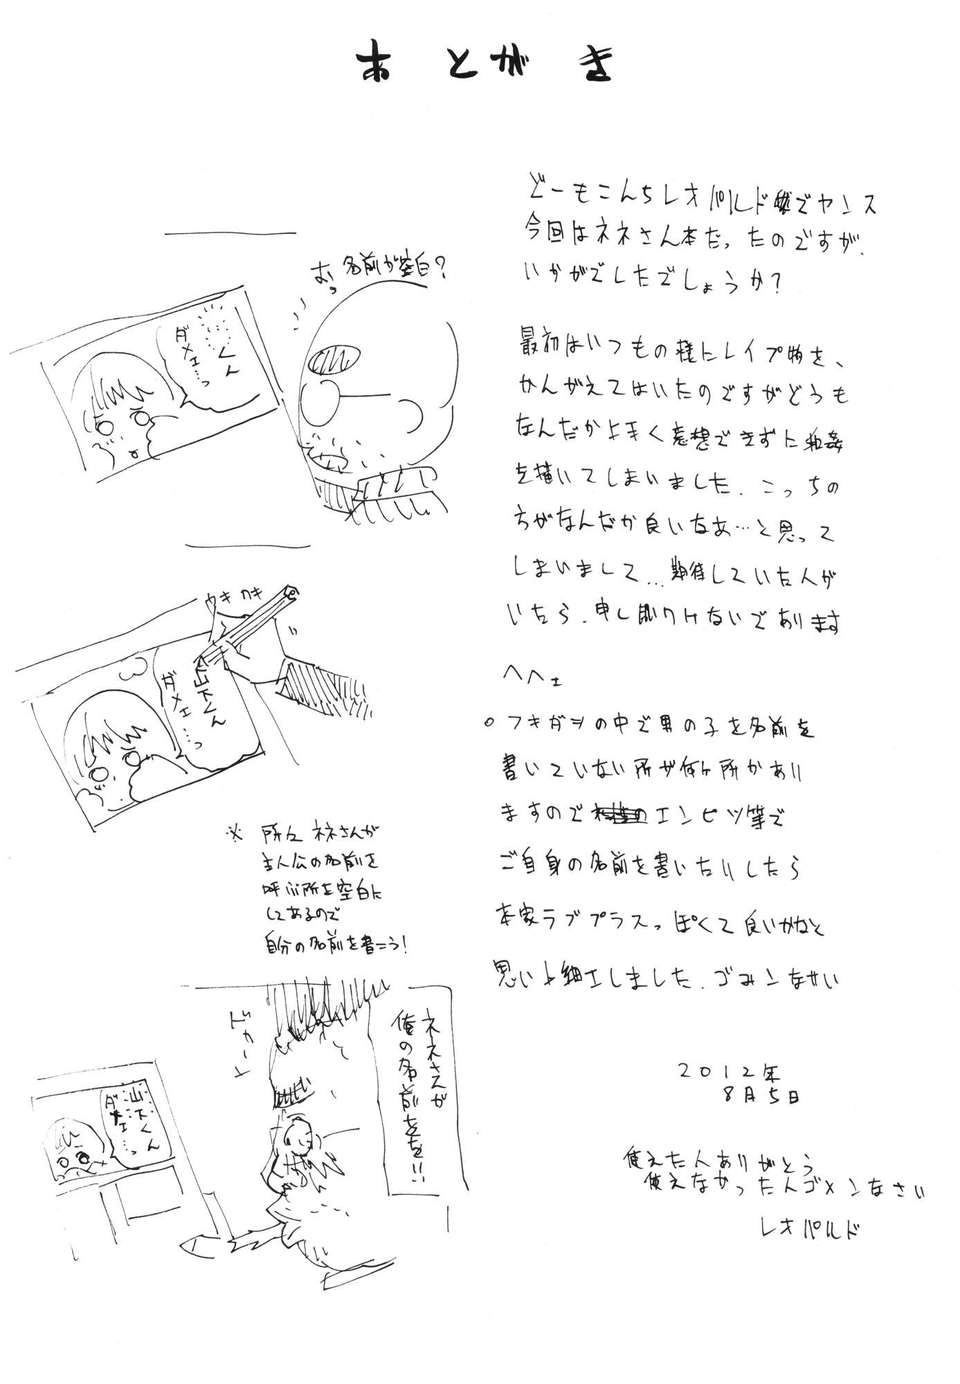 あとがき
どーもこんちレオパルド でヤンス
今回はネネさん本だったのですが、
いかがでしたでしょうか?
最初はいつもの様にレイプ物を、
かんがえてはいたのですがどうも
なんだか上手く妄想できずに和姦
を描いてしまいました、こっちの
方がなんだか良いなあ…と思って
しまいまして…期待していた人が
いたら、申し訳ないであります
へへェ
○フキダシの中で男の子を名前を
書いていない所が何ヶ所かあり
ますので エンピツ等で
ご自身の名前を書いたりしたら
本家ラブプラスっぽくて良いかなと
思い小細工しました、ゴメンなさい
2012年
8月5日
使えた人ありがとう
使えなかった人ゴメンなさい
レオパルド
おっ名前が空白?
くん
ダメェ…っ
カキカキ
山下くん
ダメェ…っ
※所々ネネさんが
主人公の名前を
呼ぶ所を空白に
してあるので
自分の名前を書こう!
ネネさんが
俺の名前をを!!
山下くん
ダメェ…っ